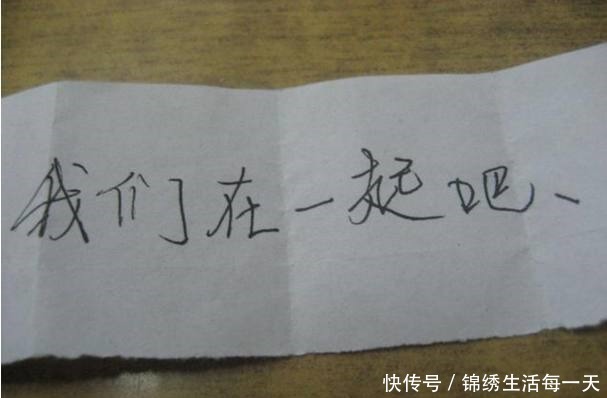 我们在一起吧、
快传号/锦绣生活每一天